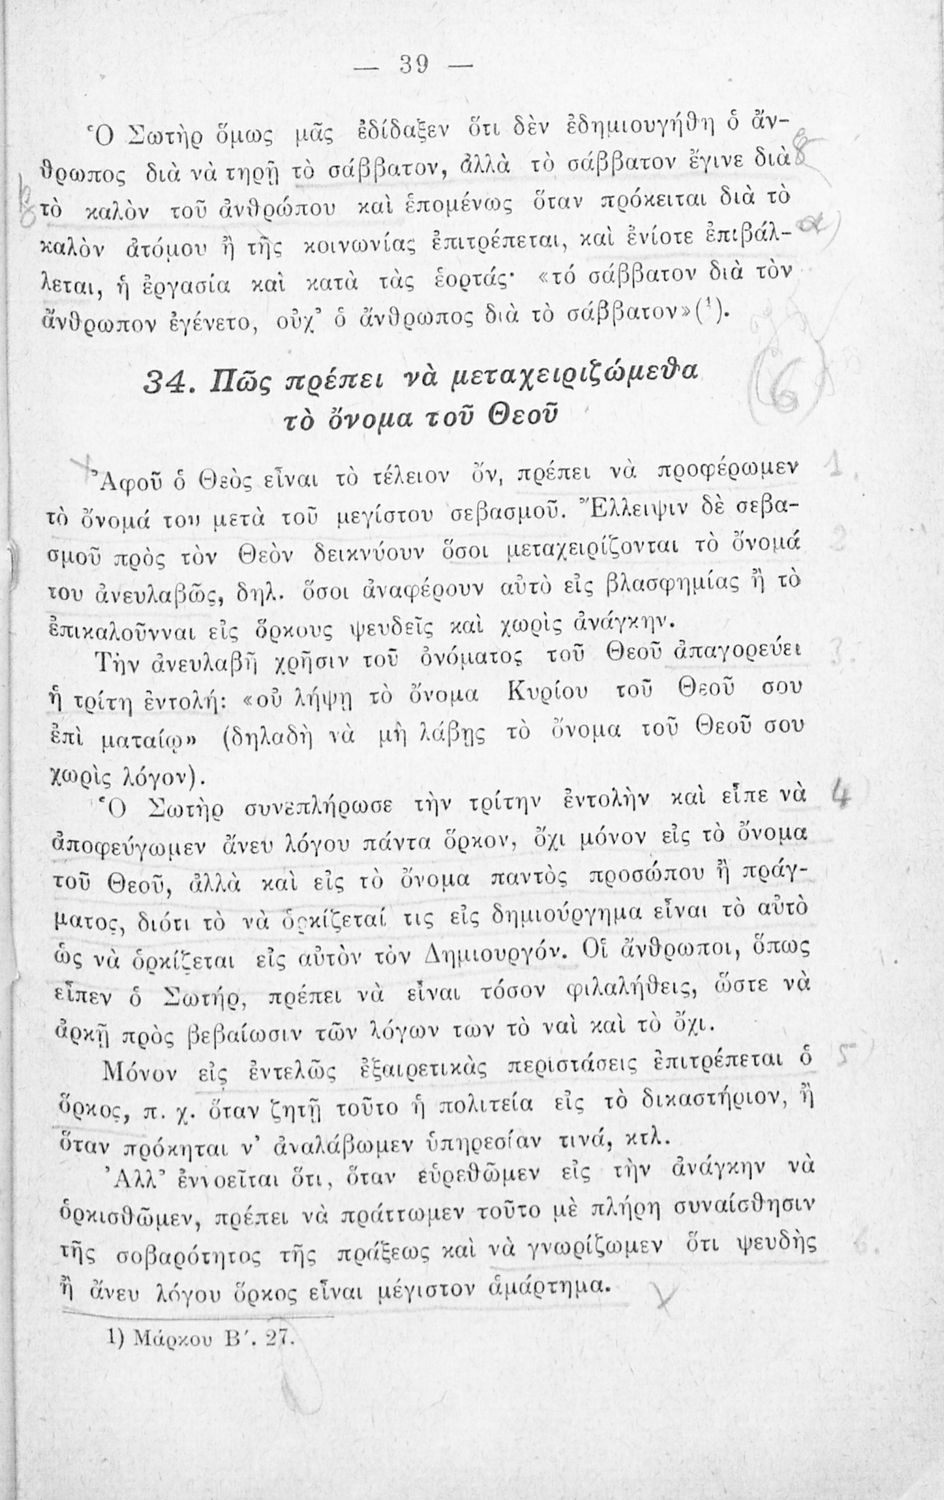 — 39 —
Ὁ Σωτὴρ ὅμως μᾶς ἐδίδαξεν ὅτι δὲν ἐδημιουγήθη ὁ ἄν-
θρωπος διὰ νὰ τηρῇ τὸ σάββατον, ἀλλὰ τὸ σάββατον ἔγινε διὰ
τὸ καλὸν τοῦ ἀνθρώπου καὶ ἑπομένως ὅταν πρόκειται διὰ τὸ
καλὸν ἀτόμου ἢ τῆς κοινωνίας ἐπιτρέπεται, καὶ ἐνίοτε ἐπιβάλ-
λεται, ἡ ἐργασία καὶ κατὰ τὰς ἑορτάς· «τό σάββατον διὰ τὸν
ἄνθρωπον ἐγένετο, οὐχ’ ὁ ἄνθρωπος διὰ τὸ σάββατον»(¹).
34. Πῶς πρέπει νὰ μεταχειριζώμεθα
τὸ ὄνομα τοῦ Θεοῦ
(6)
Ἀφοῦ ὁ Θεὸς εἶναι τὸ τέλειον ὄν, πρέπει νὰ προφέρωμεν 1.
τὸ ὄνομά του μετὰ τοῦ μεγίστου σεβασμοῦ. Ἔλλειψιν δὲ σεβα-
σμοῦ πρὸς τὸν Θεὸν δεικνύουν ὅσοι μεταχειρίζονται τὸ ὄνομά 2
του ἀνευλαβῶς, δηλ. ὅσοι ἀναφέρουν αὐτὸ εἰς βλασφημίας ἢ τὸ
ἐπικαλοῦνναι εἰς ὅρκους ψευδεῖς καὶ χωρὶς ἀνάγκην.
Τὴν ἀνευλαβῆ χρῆσιν τοῦ ὀνόματος τοῦ Θεοῦ ἀπαγορεύει 3.
ἡ τρίτη ἐντολή: «οὐ λήψῃ τὸ ὄνομα Κυρίου τοῦ Θεοῦ σου
ἐπὶ ματαίῳ» (δηλαδὴ νὰ μὴ λάβῃς τὸ ὄνομα τοῦ Θεοῦ σου
χωρὶς λόγον).
Ὁ Σωτὴρ συνεπλήρωσε τὴν τρίτην ἐντολὴν καὶ εἶπε νὰ 4
ἀποφεύγωμεν ἄνευ λόγου πάντα ὅρκον, ὄχι μόνον εἰς τὸ ὄνομα
τοῦ Θεοῦ, ἀλλὰ καὶ εἰς τὸ ὄνομα παντὸς προσώπου ἢ πράγ-
ματος, διότι τὸ νὰ ὁρκίζεταί τις εἰς δημιούργημα εἶναι τὸ αὐτὸ
ὡς νὰ ὁρκίζεται εἰς αὐτὸν τὸν Δημιουργόν. Οἱ ἄνθρωποι, ὅπως
εἶπεν ὁ Σωτήρ, πρέπει νὰ εἶναι τόσον φιλαλήθεις, ὥστε νὰ
ἀρκῇ πρὸς βεβαίωσιν τῶν λόγων των τὸ ναὶ καὶ τὸ ὄχι.
Μόνον εἰς ἐντελῶς ἐξαιρετικὰς περιστάσεις ἐπιτρέπεται ὁ 5
ὅρκος, π. χ. ὅταν ζητῇ τοῦτο ἡ πολιτεία εἰς τὸ δικαστήριον, ἢ
ὅταν πρόκηται ν’ ἀναλάβωμεν ὑπηρεσίαν τινά, κτλ.
Ἀλλ’ ἐννοεῖται ὅτι, ὅταν εὑρεθῶμεν εἰς τὴν ἀνάγκην νὰ
ὁρκισθῶμεν, πρέπει νὰ πράττωμεν τοῦτο μὲ πλήρη συναίσθησιν
τῆς σοβαρότητος τῆς πράξεως καὶ νὰ γνωρίζωμεν ὅτι ψευδὴς 6.
ἢ ἄνευ λόγου ὅρκος εἶναι μέγιστον ἁμάρτημα.
1) Μάρκου Β΄. 27.